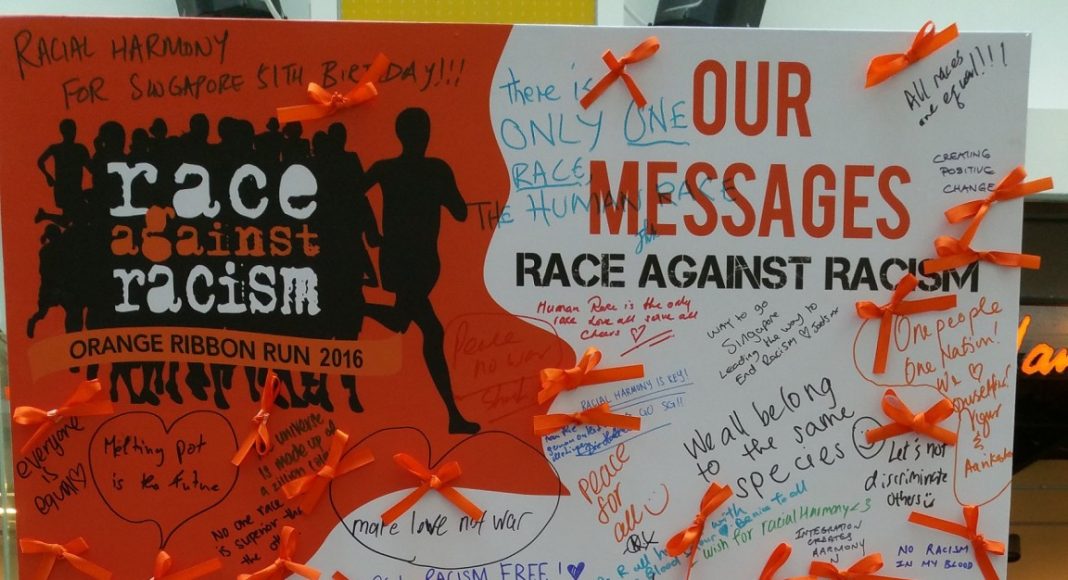 RACIAL HARMONY
FOR SINGAPORE 51TH BIRTHDAY!!!
race
against
racism
ORANGE RIBBON RUN 2016
There is
ONLY ONE
RACE,
THE HUMAN RACE
OUR
MESSAGES
RACE AGAINST RACISM
All races
are equal!!!!
CREATING
POSITIVE
CHANGE
Human Race is the only
race Love all serve all
Cheers
Peace
no war
way to go
Singapore
Leading the way to
End Racism ♡
One people
One Nation!
We ♡
&
RACIAL HARMONY IS KEY!
GO SG!!
We all belong
to the same
species
Let's not
discriminate
others
everyone
is
equal ♡
Melting pot
is the future
universe
is made up of
a zillion
No one race
is superior
make love not war
Peace
for
all
wish for racial Harmony <3
INTEGRATION
CREATES
HARMONY
NO RACISM
IN MY BLOOD
RACISM FREE!